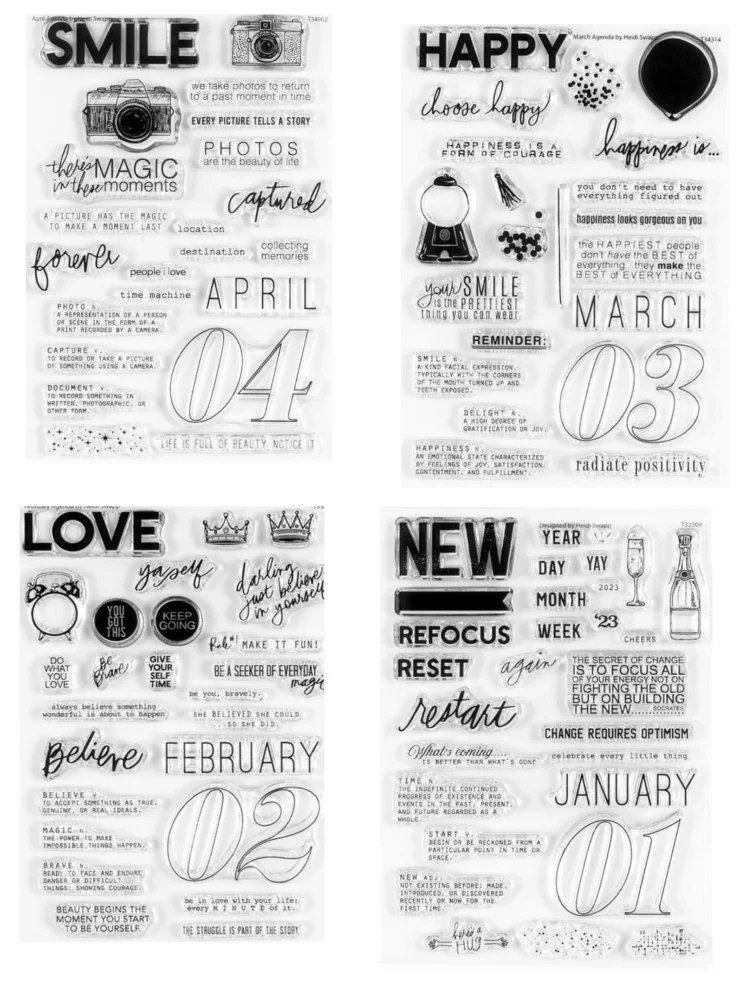 April Agenda by Heidi Swapp
T34902
SMILE
we take photos to return
to a past moment in time
EVERY PICTURE TELLS A STORY
PHOTOS
are the beauty of life
there's MAGIC
in these moments
captured
A PICTURE HAS THE MAGIC
TO MAKE A MOMENT LAST
location
forever
destination
collecting
memories
people i love
time machine
APRIL
PHOTO n.
A REPRESENTATION OF A PERSON
OR SCENE IN THE FORM OF A
PRINT RECORDED BY A CAMERA.
04
CAPTURE v.
TO RECORD OR TAKE A PICTURE
OF SOMETHING USING A CAMERA.
DOCUMENT v.
TO RECORD SOMETHING IN
WRITTEN, PHOTOGRAPHIC, OR
OTHER FORM.
LIFE IS FULL OF BEAUTY. NOTICE IT
March Agenda by Heidi Swapp
T34314
HAPPY
choose happy
HAPPINESS IS A
FORM OF COURAGE
happiness is...
you don't need to have
everything figured out
happiness looks gorgeous on you
the HAPPIEST people
don't have the BEST of
everything they make the
BEST of EVERYTHING
your SMILE
is the PRETTIEST
thing you can wear
MARCH
REMINDER:
03
SMILE n.
A KIND FACIAL EXPRESSION,
TYPICALLY WITH THE CORNERS
OF THE MOUTH TURNED UP AND
TEETH EXPOSED.
DELIGHT n.
A HIGH DEGREE OF
GRATIFICATION OR JOY.
HAPPINESS n.
AN EMOTIONAL STATE CHARACTERIZED
BY FEELINGS OF JOY, SATISFACTION,
CONTENTMENT, AND FULFILLMENT.
radiate positivity
February Agenda by Heidi Swapp
LOVE
yaself
darling
just believe
in yourself
YOU
GOT
THIS
KEEP
GOING
MAKE IT FUN!
DO
WHAT
YOU
LOVE
Be
Brave
GIVE
YOUR
SELF
TIME
BE A SEEKER OF EVERYDAY
magic
be you, bravely.
always believe something
wonderful is about to happen
SHE BELIEVED SHE COULD
...SO SHE DID.
Believe
FEBRUARY
02
BELIEVE v.
TO ACCEPT SOMETHING AS TRUE,
GENUINE, OR REAL IDEALS.
MAGIC n.
THE POWER TO MAKE
IMPOSSIBLE THINGS HAPPEN.
BRAVE v.
READY TO FACE AND ENDURE
DANGER OR DIFFICULT
THINGS; SHOWING COURAGE.
BEAUTY BEGINS THE
MOMENT YOU START
TO BE YOURSELF.
be in love with your life;
every MINUTE of it.
THE STRUGGLE IS PART OF THE STORY
Designed by Heidi Swapp
T32309
NEW
YEAR
DAY
YAY
MONTH
2023
WEEK
'23
CHEERS
REFOCUS
RESET
again
THE SECRET OF CHANGE
IS TO FOCUS ALL
OF YOUR ENERGY NOT ON
FIGHTING THE OLD
BUT ON BUILDING
THE NEW..........SOCRATES
restart
CHANGE REQUIRES OPTIMISM
What's coming....
IS BETTER THAN WHAT'S GONE
celebrate every little thing
TIME n.
THE INDEFINITE CONTINUED
PROGRESS OF EXISTENCE AND
EVENTS IN THE PAST, PRESENT,
AND FUTURE REGARDED AS A
WHOLE.
JANUARY
01
START v.
BEGIN OR BE RECKONED FROM A
PARTICULAR POINT IN TIME OR
SPACE.
NEW adj.
NOT EXISTING BEFORE; MADE,
INTRODUCED, OR DISCOVERED
RECENTLY OR NOW FOR THE
FIRST TIME.
here's a
HUG